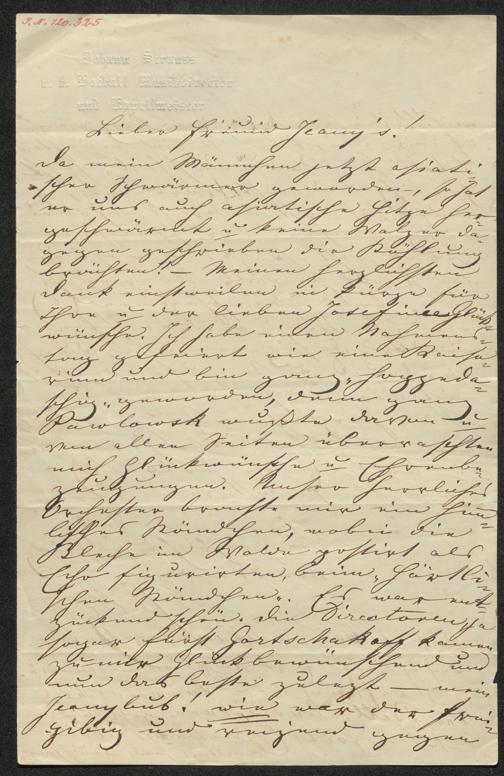 I.N. 120.325
Johann Strauss
k. k. Hofball Musikdirector
und Kapellmeister
Lieber Freund Jeany's!
Da mein Männchen jetzt asiati-
scher Schwärmer geworden, so hat
er uns auch asiatische Hitze her-
geschwärmt u keine Walzer da-
gegen geschrieben die Kühlung
brächten! – Meinen herzlichsten
Dank einstweilen in Kürze für
Ihre u der lieben Josefine Glück-
wünsche. Ich habe einen Nahmens-
tag gefeiert wie eine Kaise-
rinn und bin ganz
geworden, denn ganz
Pawlowsk wußte davon u
von allen Seiten überraschten
mich Glückwünsche u Ehrenbe-
zeugungen. Unser herrliches
Orchester brachte mir ein himm-
lisches Ständchen, wobei die
Bleche im Walde postirt als
Echo figurirten, beim
schen Ständchen. Es war ent-
zückend schön, die Directoren, ja
sogar Fürst Gortschakoff kamen
zu mir Glückbewünschend und
nun das beste zuletzt – mein
Jeanybub! wie war der frei-
gibig und reizend gegen